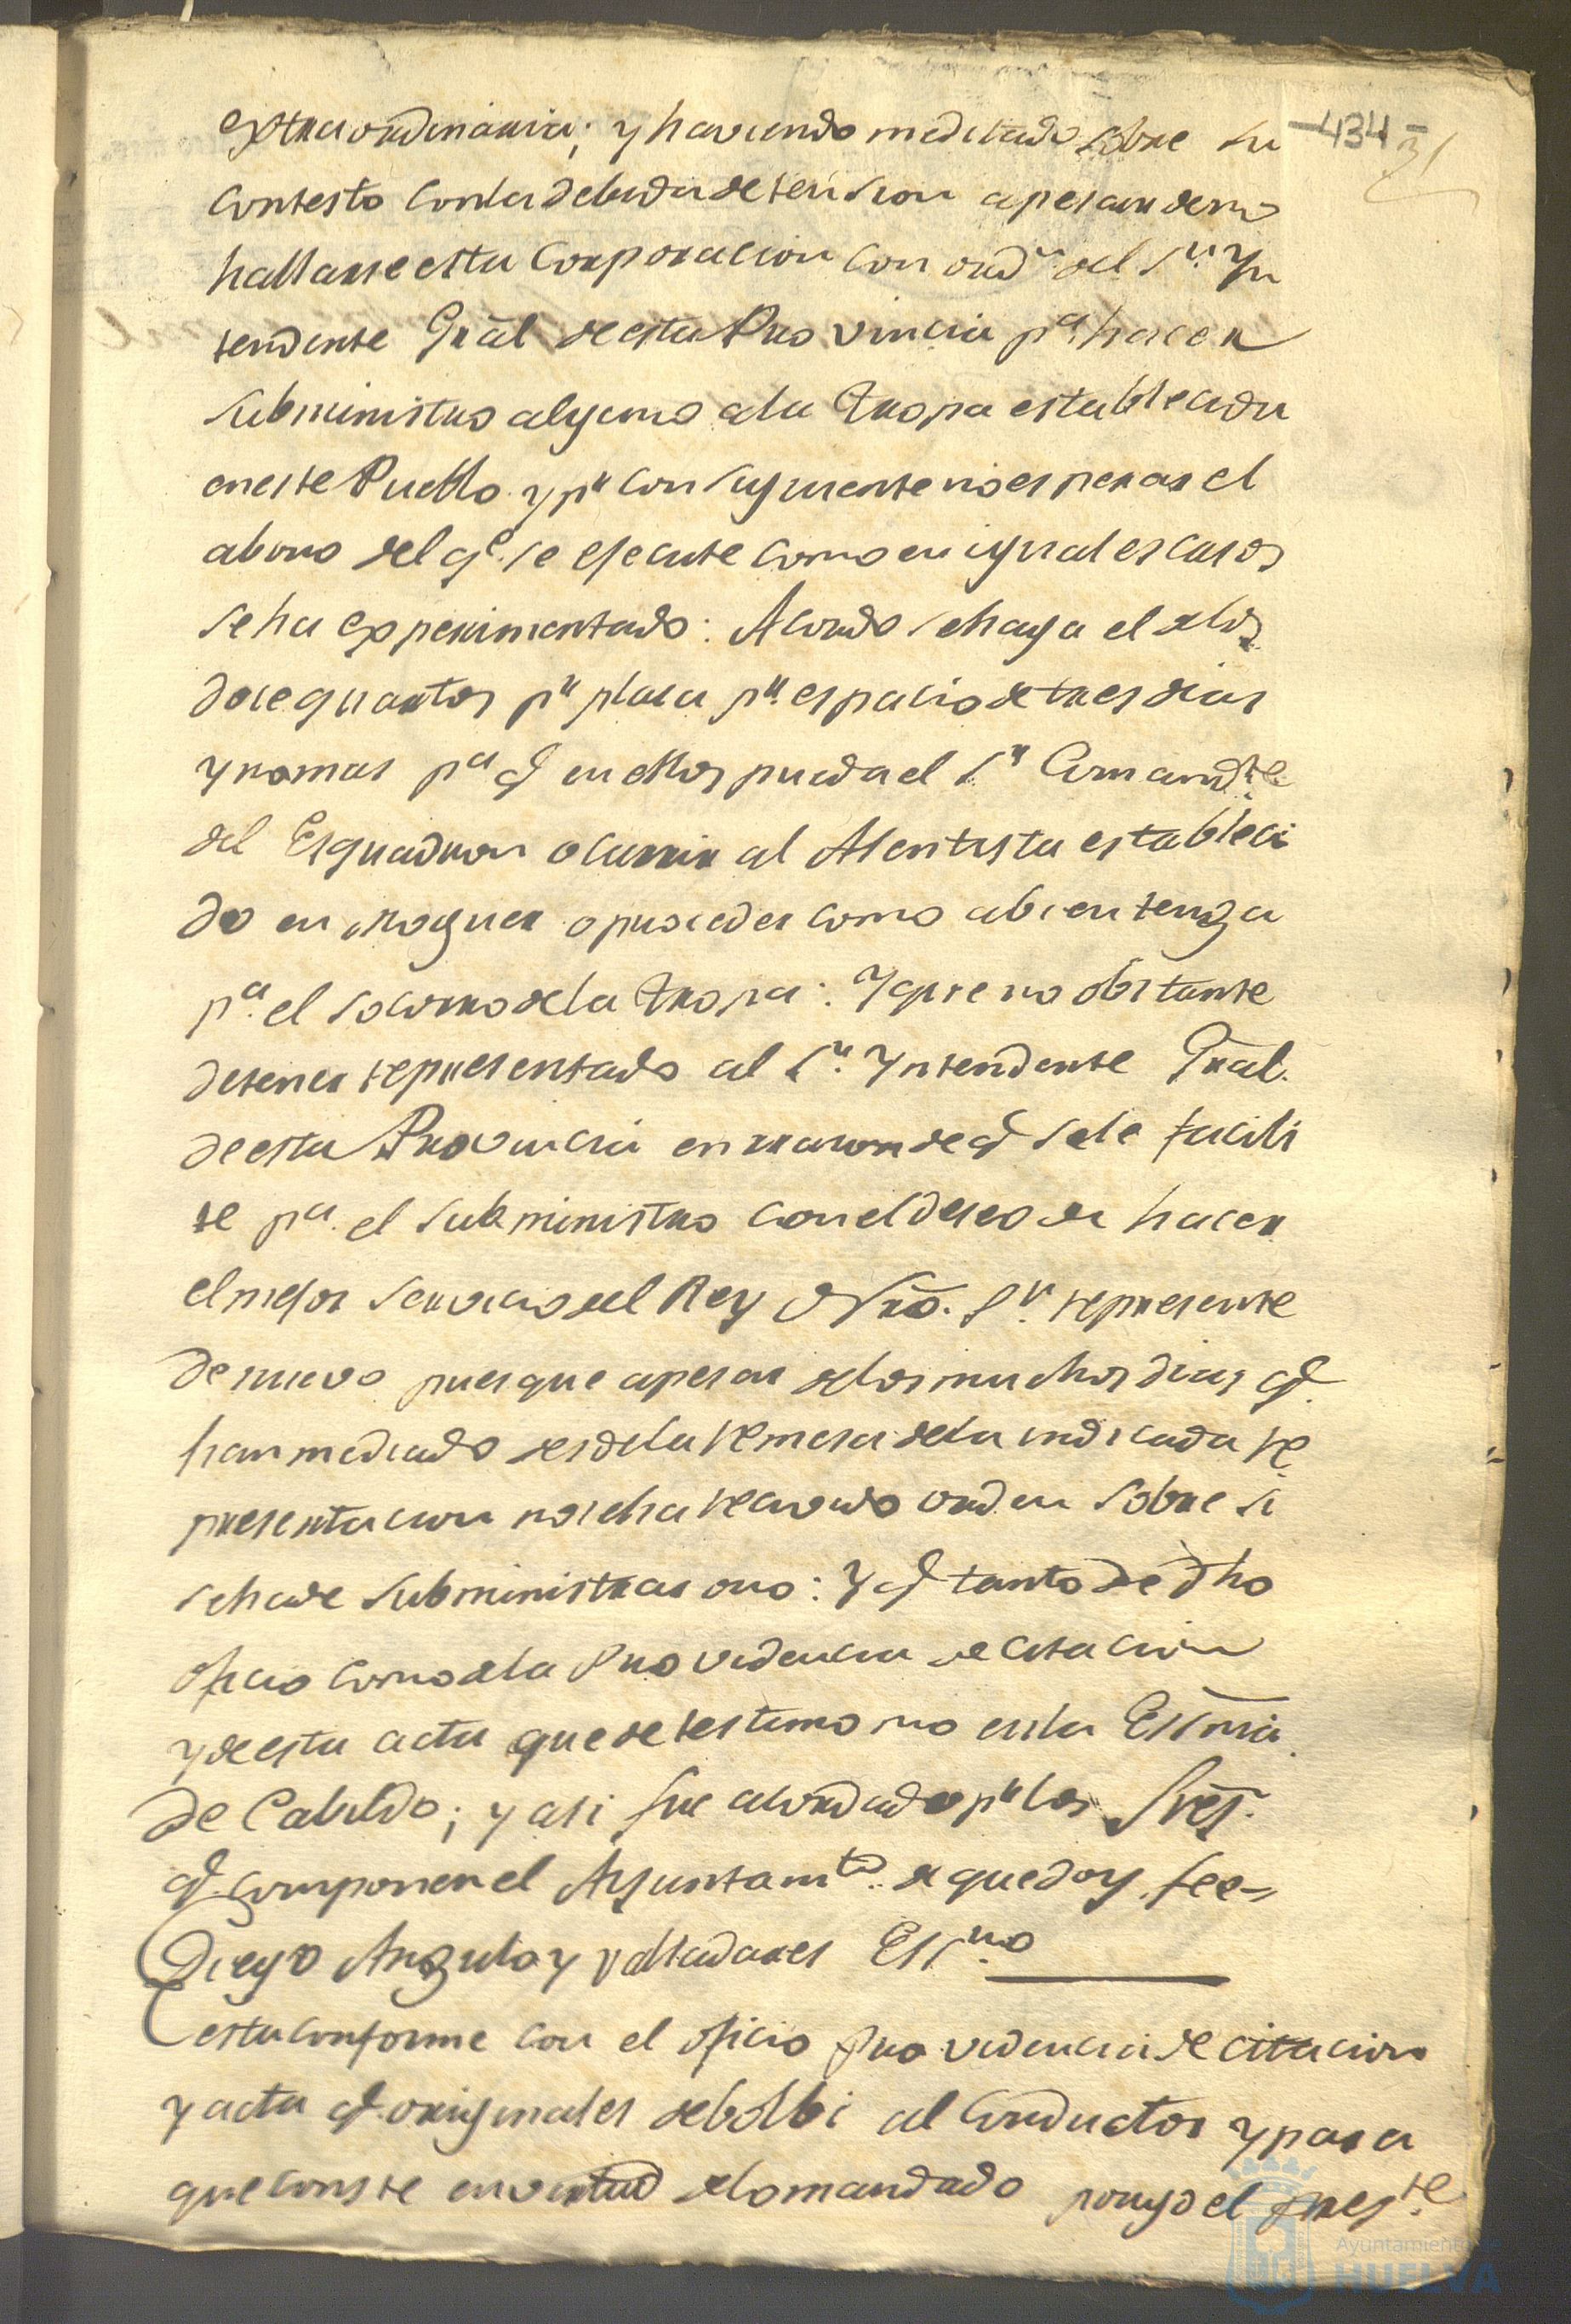 extraordinaria; y haviendo meditado sobre su
-434-
contesto con la debida detension a pesar de no
hallarse esta Corporacion con ordn. del Sr. Yn
tendente Gral de esta Provincia pa. hacer
subministro alguno a la tropa establecida
en este Pueblo y pr consiguiente no esperar el
abono del qe. se ejecute como en iguales casos
se ha experimentado: Acordo se haga el de los
doce quartos pr plasa pr. espacio de tres dias
y no mas pa q en ellos pueda el Sr Comandte.
del Esquadron ocurrir al Asentista estableci
do en Moguer o proceder como a bien tenga
pa. el socorro de la tropa: Y que no obstante
de tener representado al Sr. Yntendente Gral.
de esta Provincia en razon de q se le facili
te pa. el subministro con el deseo de hacer
el mejor servicio del Rey Ntro. Sr. represente
de nuevo pues que a pesar de los muchos dias q.
han mediado desde la remesa de la indicada re
presentacion no se ha recivido orden sobre si
se ha de subministrar o no: Y q tanto de dho
oficio como de la Providencia de citacion
y de esta acta quede testimonio en la Essnia.
de Cabildo; y asi fue acordado pr los Sres.
q. componen el Ayuntamto. de que doy fee-
Diego Angulo y Valladares Essno.
esta conforme con el oficio providencia de citacion
y acta q. originales debolbi al Conductor y para
que conste en virtud de lo mandado pongo el preste.
Ayuntamiento de
HUELVA